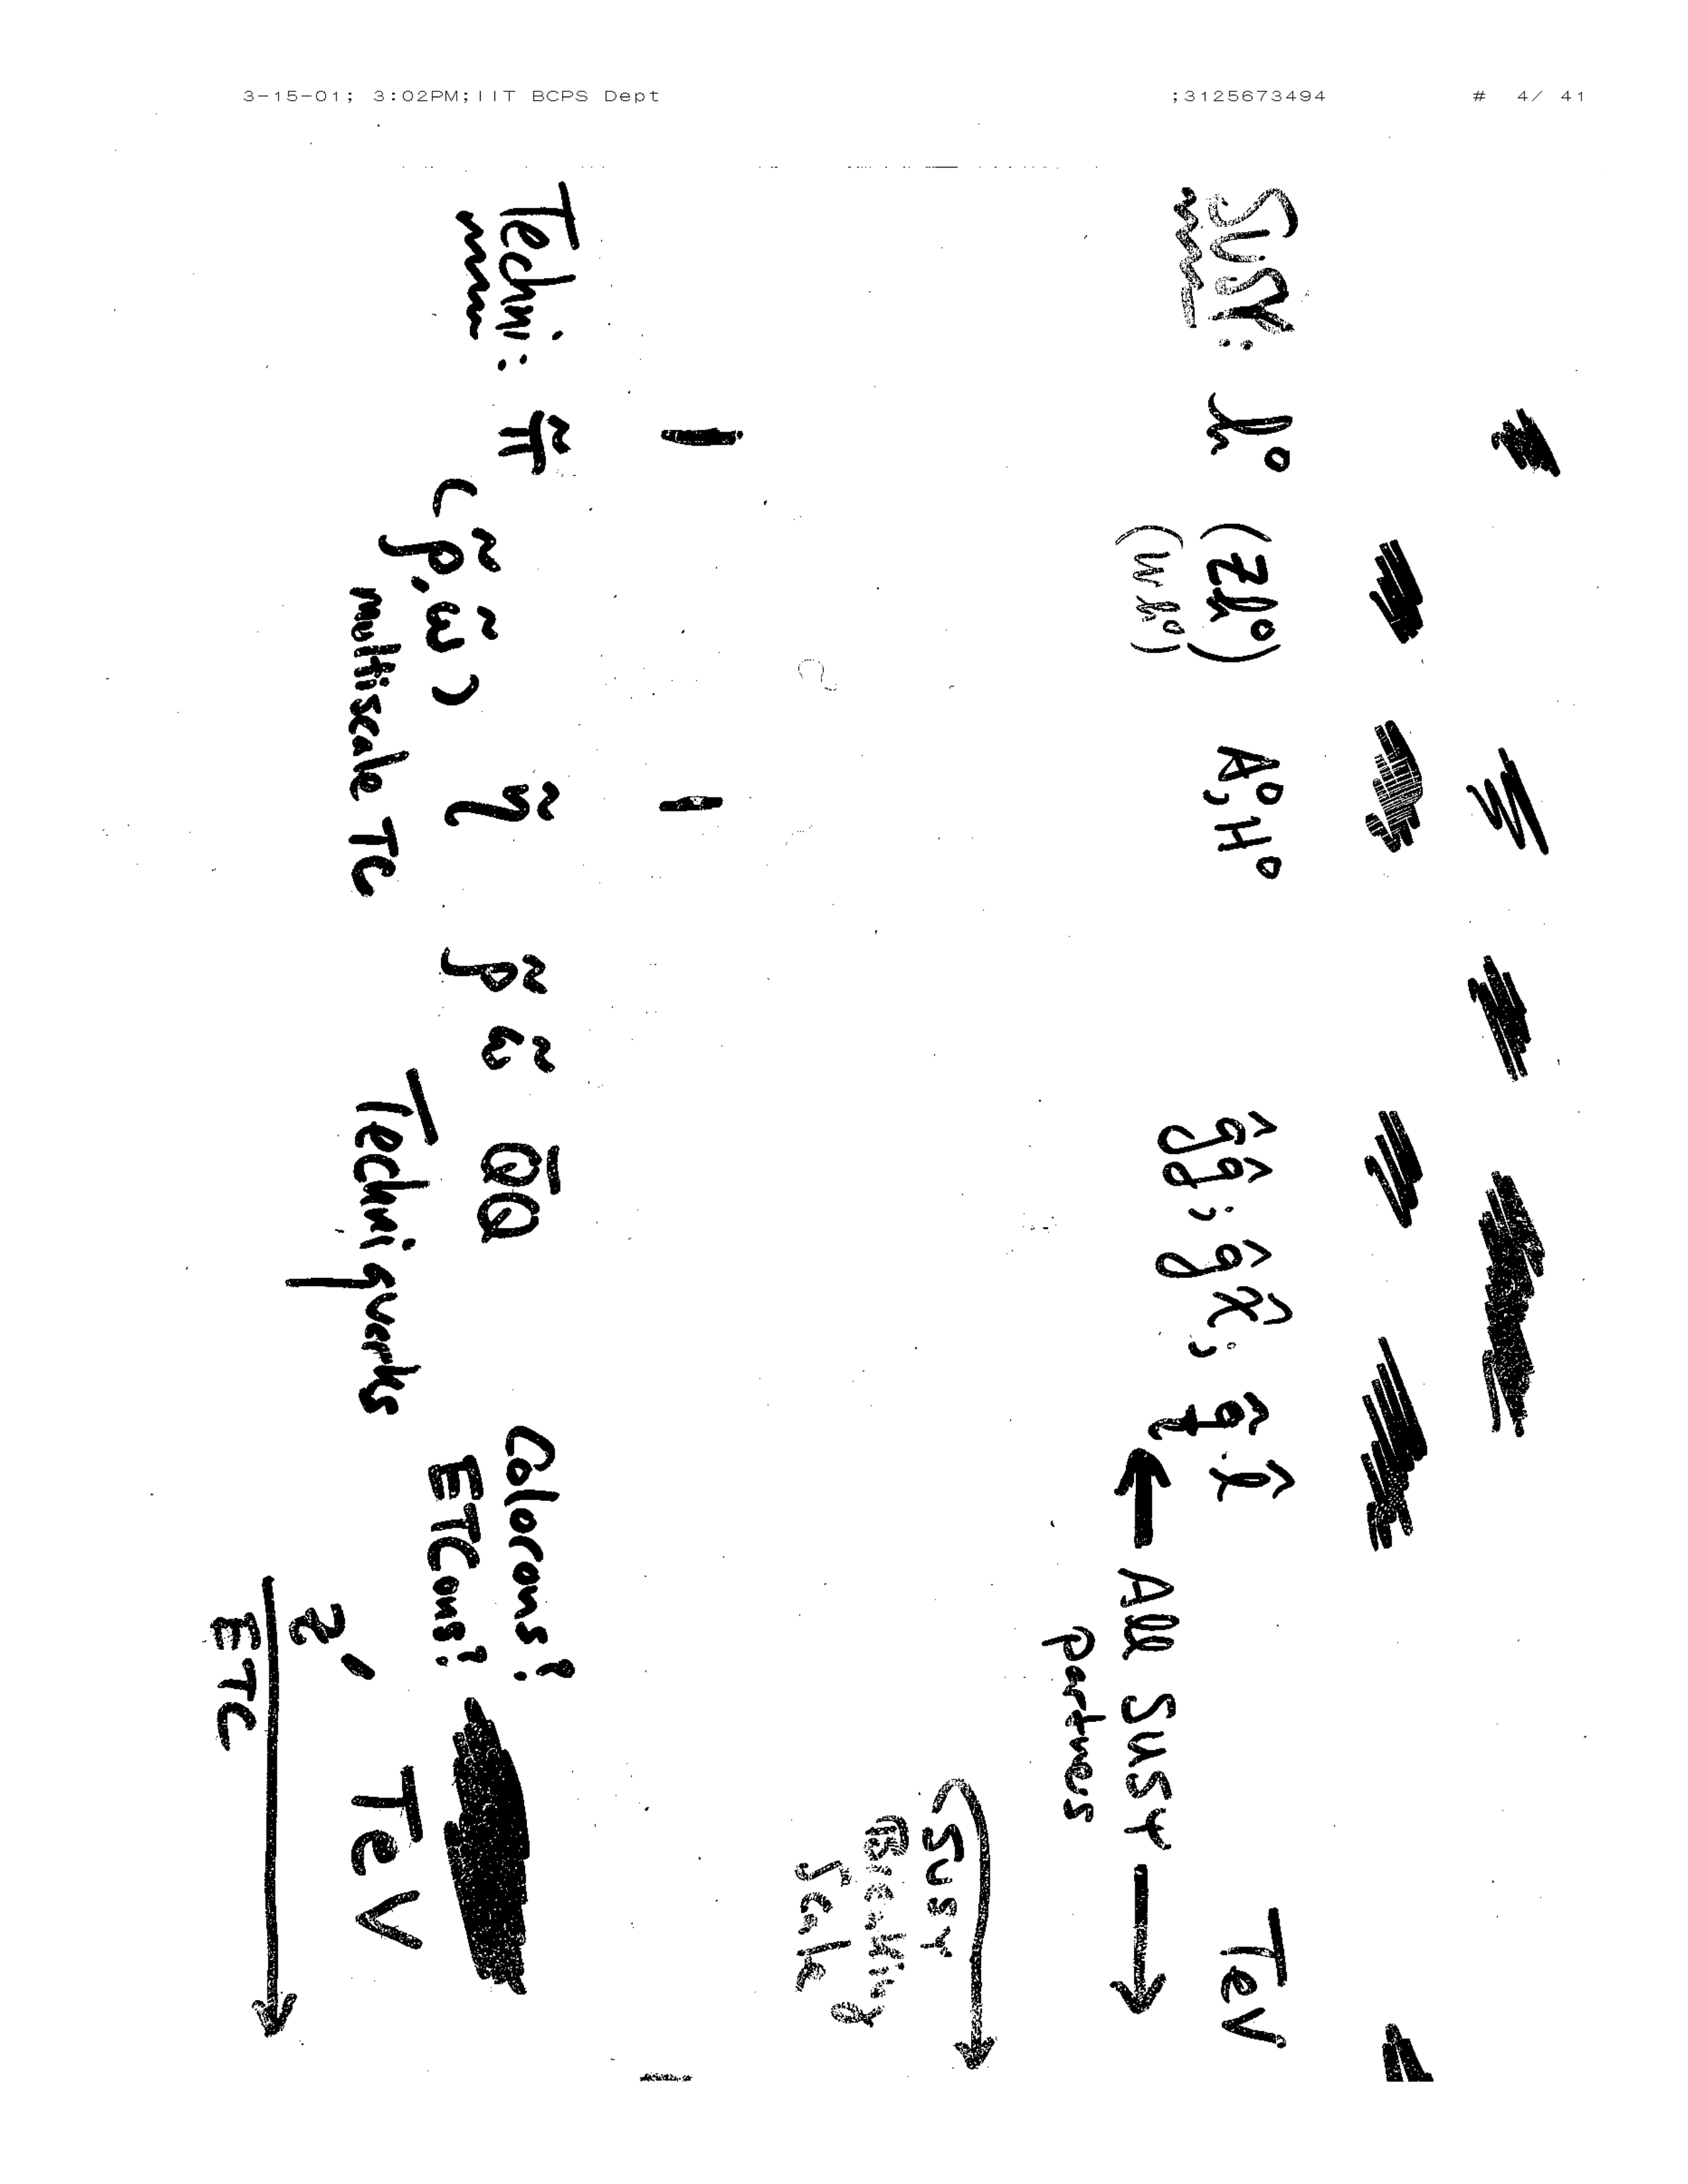 3-15-01; 3:02PM;IIT BCPS Dept ;3125673494 # 4/ 41
SUSY: h⁰ (Zh⁰) A⁰, H⁰ ĝĝ; ĝχ̂; q̂ l̂ TeV
(Wh⁰)
← All SUSY →
partners
SUSY
Breaking
Scale
Techni: π̃ η̃ ρ̃ ω̃ Q̄Q Colorons?
(ρ̃, ω̃) ETCons?
multiscale TC Techniquarks TeV
Z'
ETC